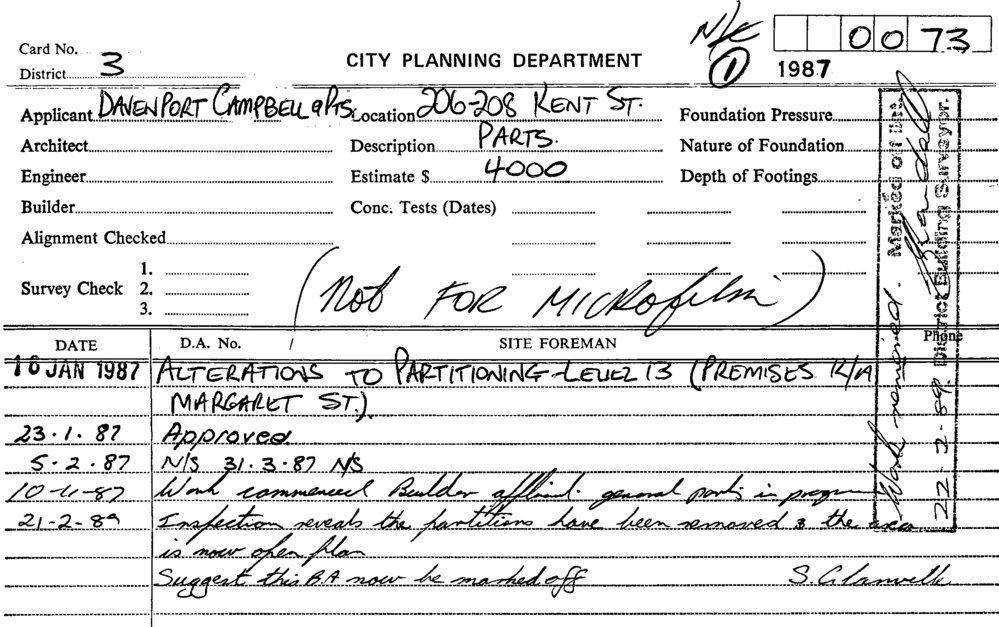 N/C
1
0073
Card No.
District 3
CITY PLANNING DEPARTMENT
1987
Applicant DAVENPORT CAMPBELL & Pts. Location 206-208 KENT ST. Foundation Pressure
Architect Description PARTS. Nature of Foundation
Engineer Estimate $ 4000 Depth of Footings
Builder Conc. Tests (Dates)
Alignment Checked
Survey Check 1.
2.
3.
(Not FOR MICROfilm)
DATE D.A. No. SITE FOREMAN Phone
16 JAN 1987 ALTERATIONS TO PARTITIONING - LEVEL 13 (PREMISES K/A
MARGARET ST.)
23.1.87 Approved
5.2.87 N/S 31.3.87 N/S
Work commenced Builder general parts in
21-2-89 Inspection reveals the partitions have been removed & the area
is now open plan
Suggest this BA now be marked off S. Glanville
Marked off list.
District Building Surveyor.
Work removed.
22-2-89